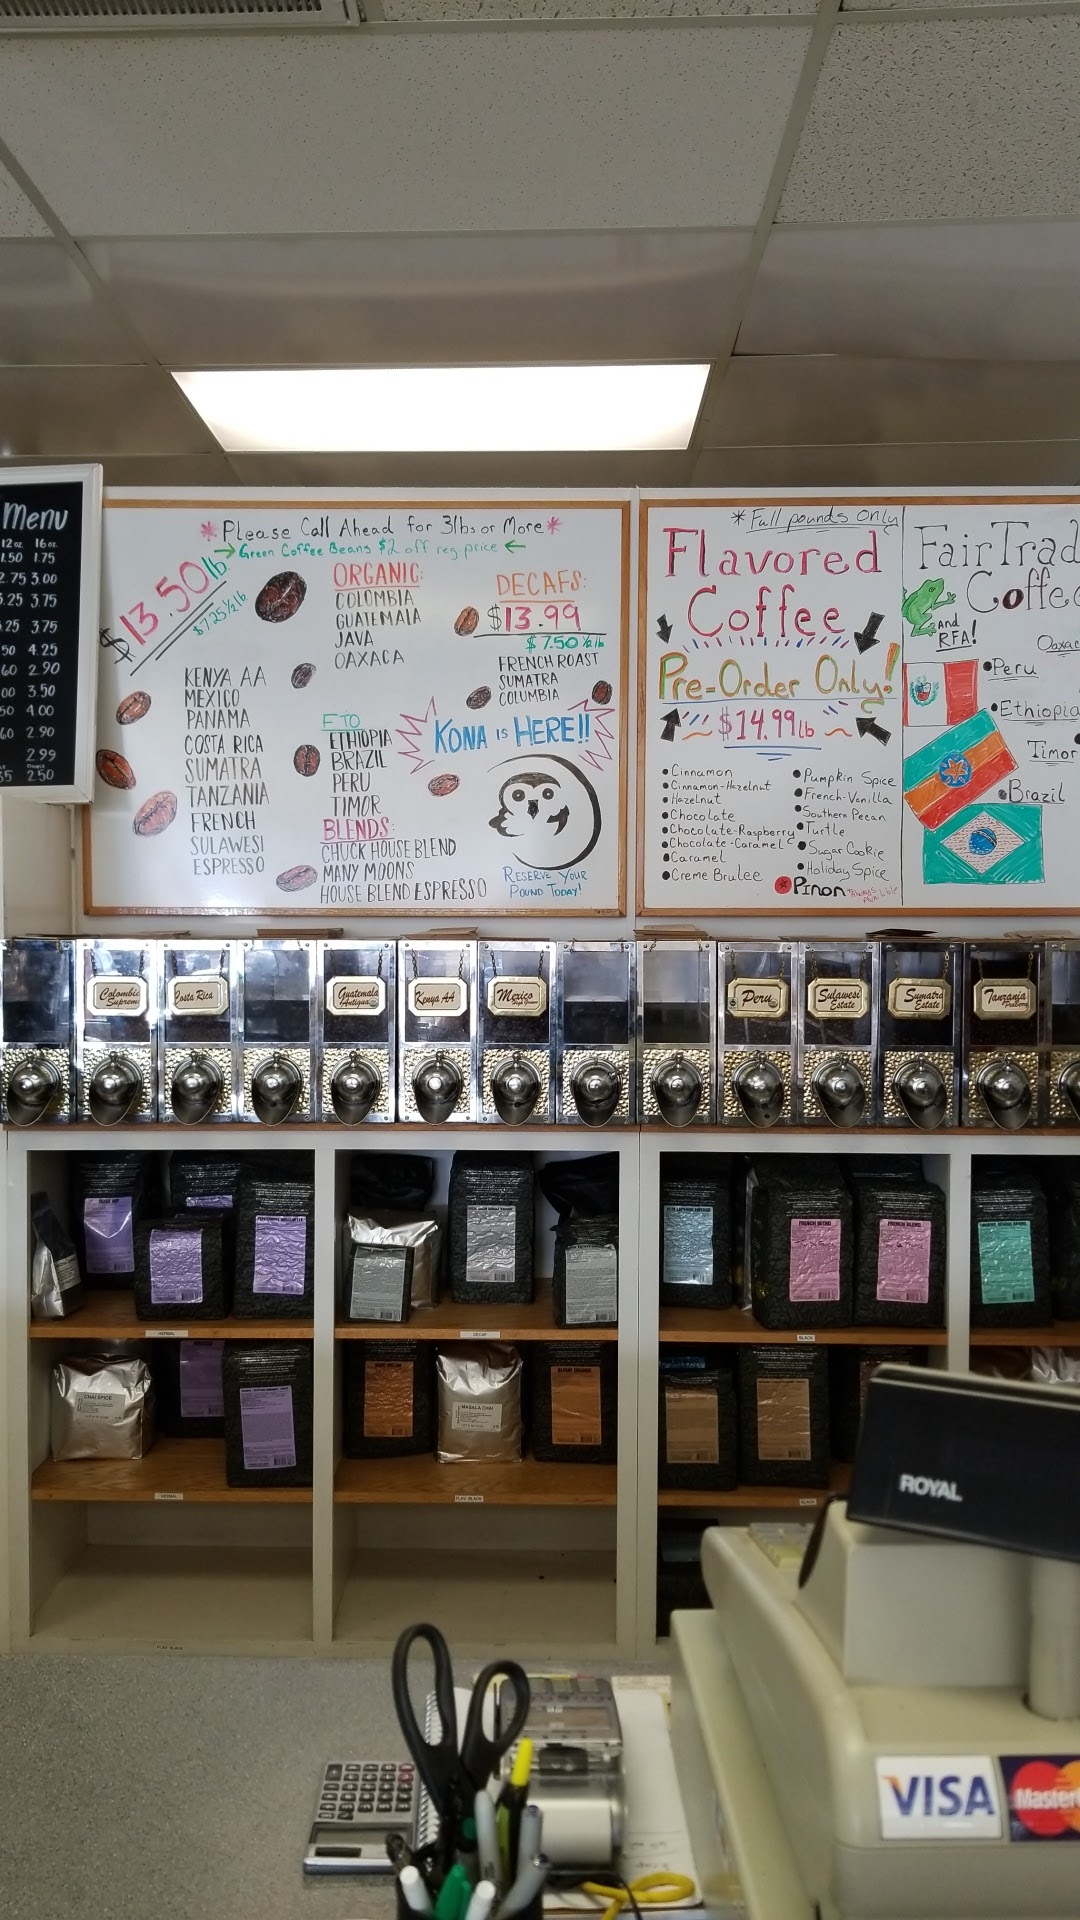 Menu
12oz 16oz
1.50 1.75
2.75 3.00
3.25 3.75
3.75
4.25
2.90
3.50
4.00
2.90
2.99
2.50
*Please Call Ahead for 3lbs or More*
→Green Coffee Beans $2 off reg price←
$13.50lb
$7.25 1/2 lb
KENYA AA
MEXICO
PANAMA
COSTA RICA
SUMATRA
TANZANIA
FRENCH
SULAWESI
ESPRESSO
ORGANIC:
COLOMBIA
GUATEMALA
JAVA
OAXACA
FTO
ETHIOPIA
BRAZIL
PERU
TIMOR
BLENDS:
CHUCK HOUSE BLEND
MANY MOONS
HOUSE BLEND ESPRESSO
DECAFS:
$13.99
$7.50 1/2 lb
FRENCH ROAST
SUMATRA
COLUMBIA
KONA IS HERE!!
RESERVE YOUR
POUND TODAY!
*Full pounds Only
Flavored
Coffee
Pre-Order Only!
$14.99lb
•Cinnamon
•Cinnamon-Hazelnut
•Hazelnut
•Chocolate
•Chocolate-Raspberry
•Chocolate-Caramel
•Caramel
•Creme Brulee
•Pumpkin Spice
•French-Vanilla
•Southern Pecan
•Turtle
•Sugar Cookie
•Holiday Spice
Pinon
Fair Trad
Coffee
and
RFA!
Oaxac
•Peru
•Ethiopia
Timor
•Brazil
Colombia
Supremo
Costa Rica
Guatemala
Antigua
Kenya AA
Mexico
Peru
Sulawesi
Estate
Sumatra
Estate
Tanzania
Peaberry
FRENCH BLEND
FRENCH BLEND
HERBAL
DECAF
BLACK
CHAI SPICE
MASALA CHAI
HERBAL
FLAV. BLACK
BLACK
FLAV. BLACK
ROYAL
VISA
Master